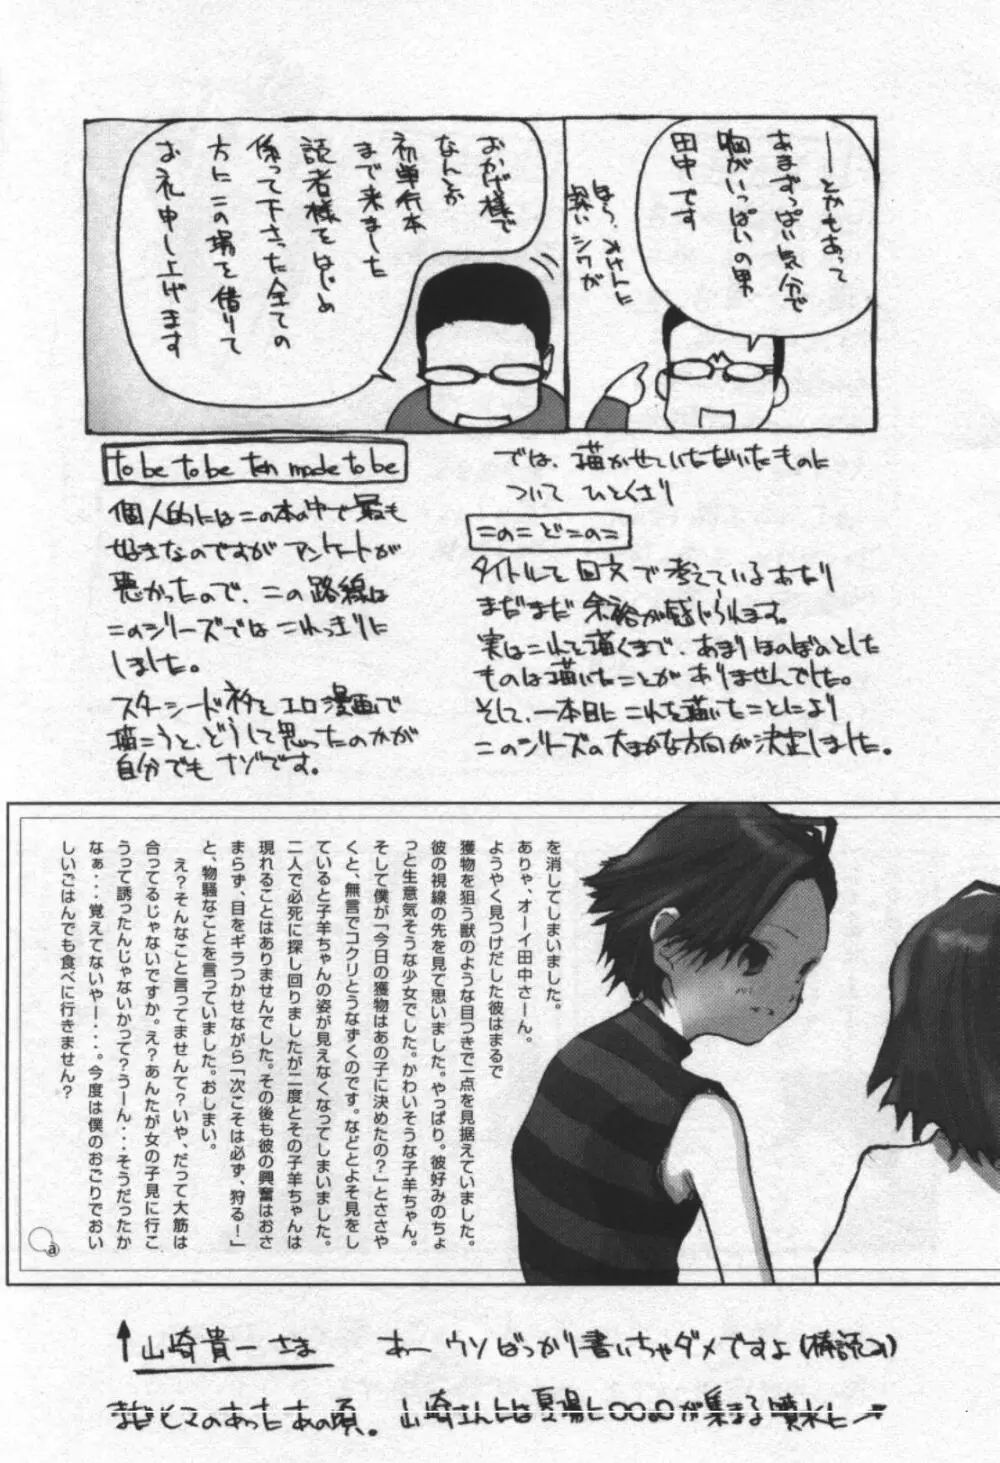 ―とかもあって
あまずっぱい気分で
胸がいっぱいの男
田中です
ほら、オトナに
深いシワが
おかげ様で
なんとか
初単行本
まで来ました
読者様をはじめ
係って下さった全ての
方にこの場を借りて
お礼申し上げます
では、描かせていただいたものに
ついて ひとくさり
このこ どこのこ
タイトルを回文で考えているあたり
まだまだ余裕が感じられます。
実はこれを描くまで、あまりほのぼのとした
ものは描いたことがありませんでした。
そして、一本目にこれを描いたことにより
このシリーズの大まかな方向が決定しました。
to be to be ten made to be
個人的にはこの本の中で最も
好きなのですが アンケートが
悪かったので、この路線は
このシリーズではこれっきりに
しました。
スターシード ネタをエロ漫画で
描こうと、どうして思ったのかが
自分でもナゾです。
を消してしまいました。
ありゃ、オーイ田中さーん。
ようやく見つけだした彼はまるで
獲物を狙う獣のような目つきで一点を見据えていました。
彼の視線の先を見て思いました。やっぱり。彼好みのちょ
っと生意気そうな少女でした。かわいそうな子羊ちゃん。
そして僕が「今日の獲物はあの子に決めたの？」とささや
くと、無言でコクリとうなずくのです。などとよそ見をし
ていると子羊ちゃんの姿が見えなくなってしまいました。
二人で必死に探し回りましたが二度とその子羊ちゃんは
現れることはありませんでした。その後も彼の興奮はおさ
まらず、目をギラつかせながら「次こそは必ず、狩る！」
と、物騒なことを言っていました。おしまい。
え？そんなこと言ってませんて？いや、だって大筋は
合ってるじゃないですか。え？あんたが女の子見に行こ
うって誘ったんじゃないかって？うーん・・・そうだったか
なぁ・・・覚えてないやー・・・。今度は僕のおごりでおい
しいごはんでも食べに行きません？
ⓐ
↑山崎貴一さま あー ウソばっかり書いちゃダメですよ(棒読み)
まだヒマのあったあの頃。山崎さんとは夏場に〇〇〇が集まる噴水に→